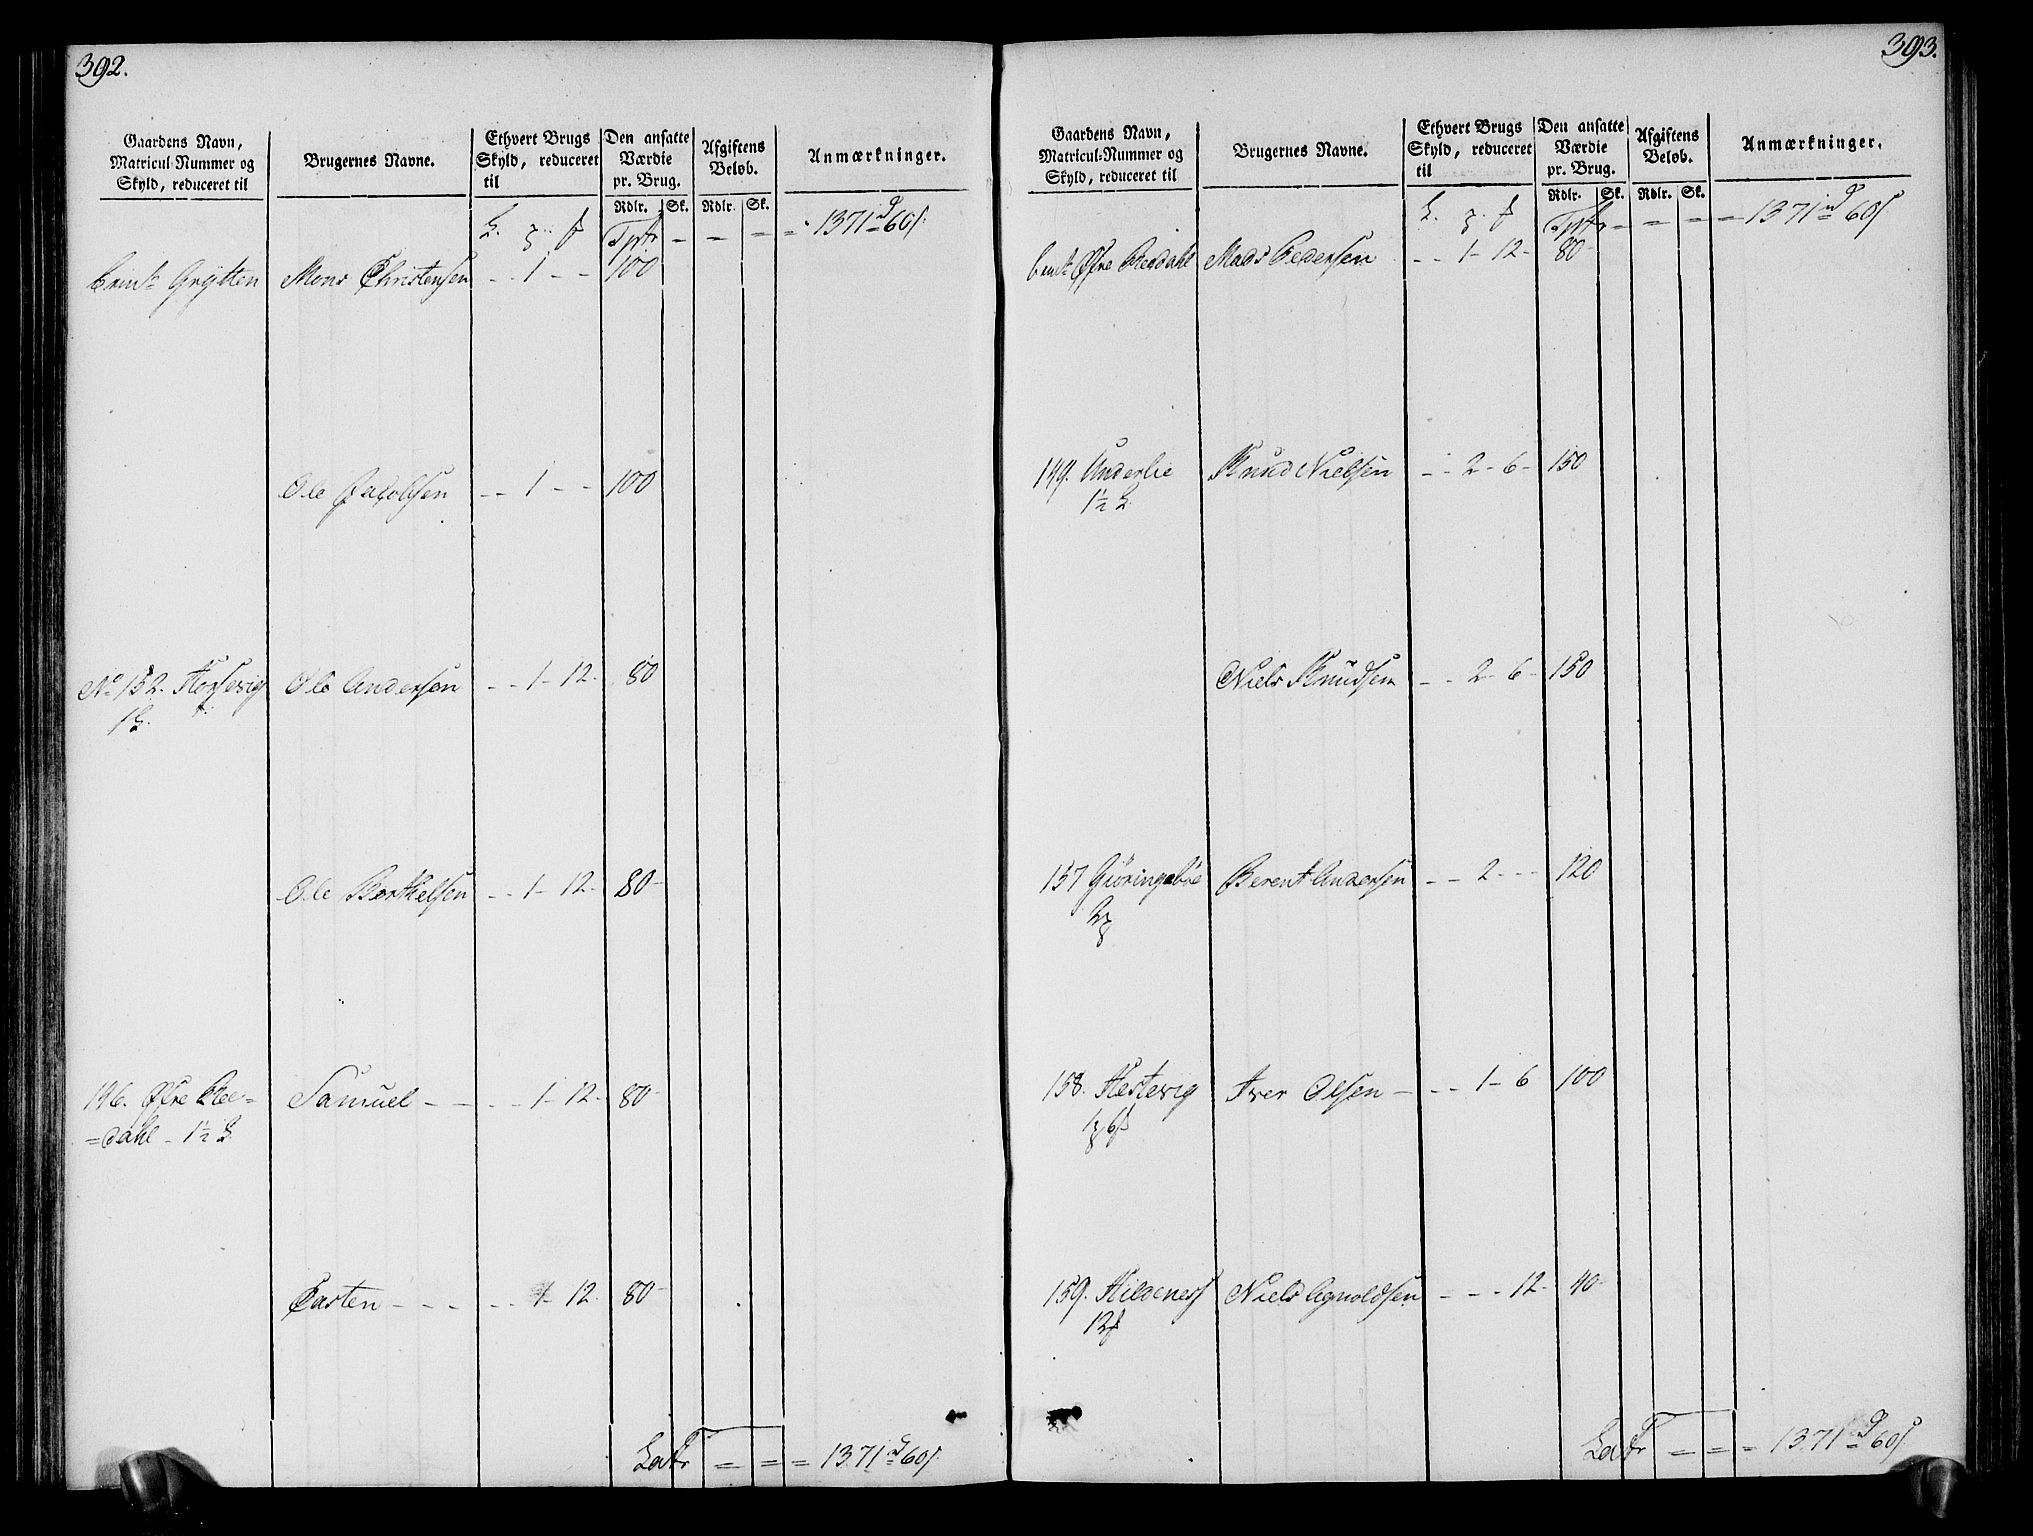 392.
Gaardens Navn, Matricul-Nummer og Skyld, reduceret til
Brugernes Navne.
Ethvert Brugs Skyld, reduceret til
Den ansatte Værdie pr. Brug.
Afgiftens Beløb.
Anmærkninger.
Rdlr. Sk. Rdlr. Sk.
Tpr - - - = 1371 60
Grÿtten Mons Christensen - - 1 - - 100
Ole Jacobsen - - 1 - - 100
No 152. Horsevig Ole Andersen - - 1 - 12 - 80
1
Ole Barthelsen - - 1 - 12 - 80 -
146. Øfre Blee= Samuel - - - - 1 - 12 - 80 -
=dahl - 1½
Carsten - - - - - 1 - 12 - 80 -
Latr = = = 1371 60
393.
Gaardens Navn, Matricul-Nummer og Skyld, reduceret til
Brugernes Navne.
Ethvert Brugs Skyld, reduceret til
Den ansatte Værdie pr. Brug.
Afgiftens Beløb.
Anmærkninger.
Rdlr. Sk. Rdlr. Sk.
Tpr - - - - 1371 60
Øfre Bleedahl Mads Pedersen - - 1 - 12 - 80
149. Underlie Knud Nielsen - - 2 - 6 - 150
1½
Niels Knudsen - - 2 - 6 - 150
157 Giøringsbøe Berent Andersen - - 2 - - - 120
2
158. Hestevig Iver Olsen - - - 1 - 6 100
1 6
159. Hildenes Niels Arnoldsen - - - 12 - 40
12
Latr = = = 1371 60